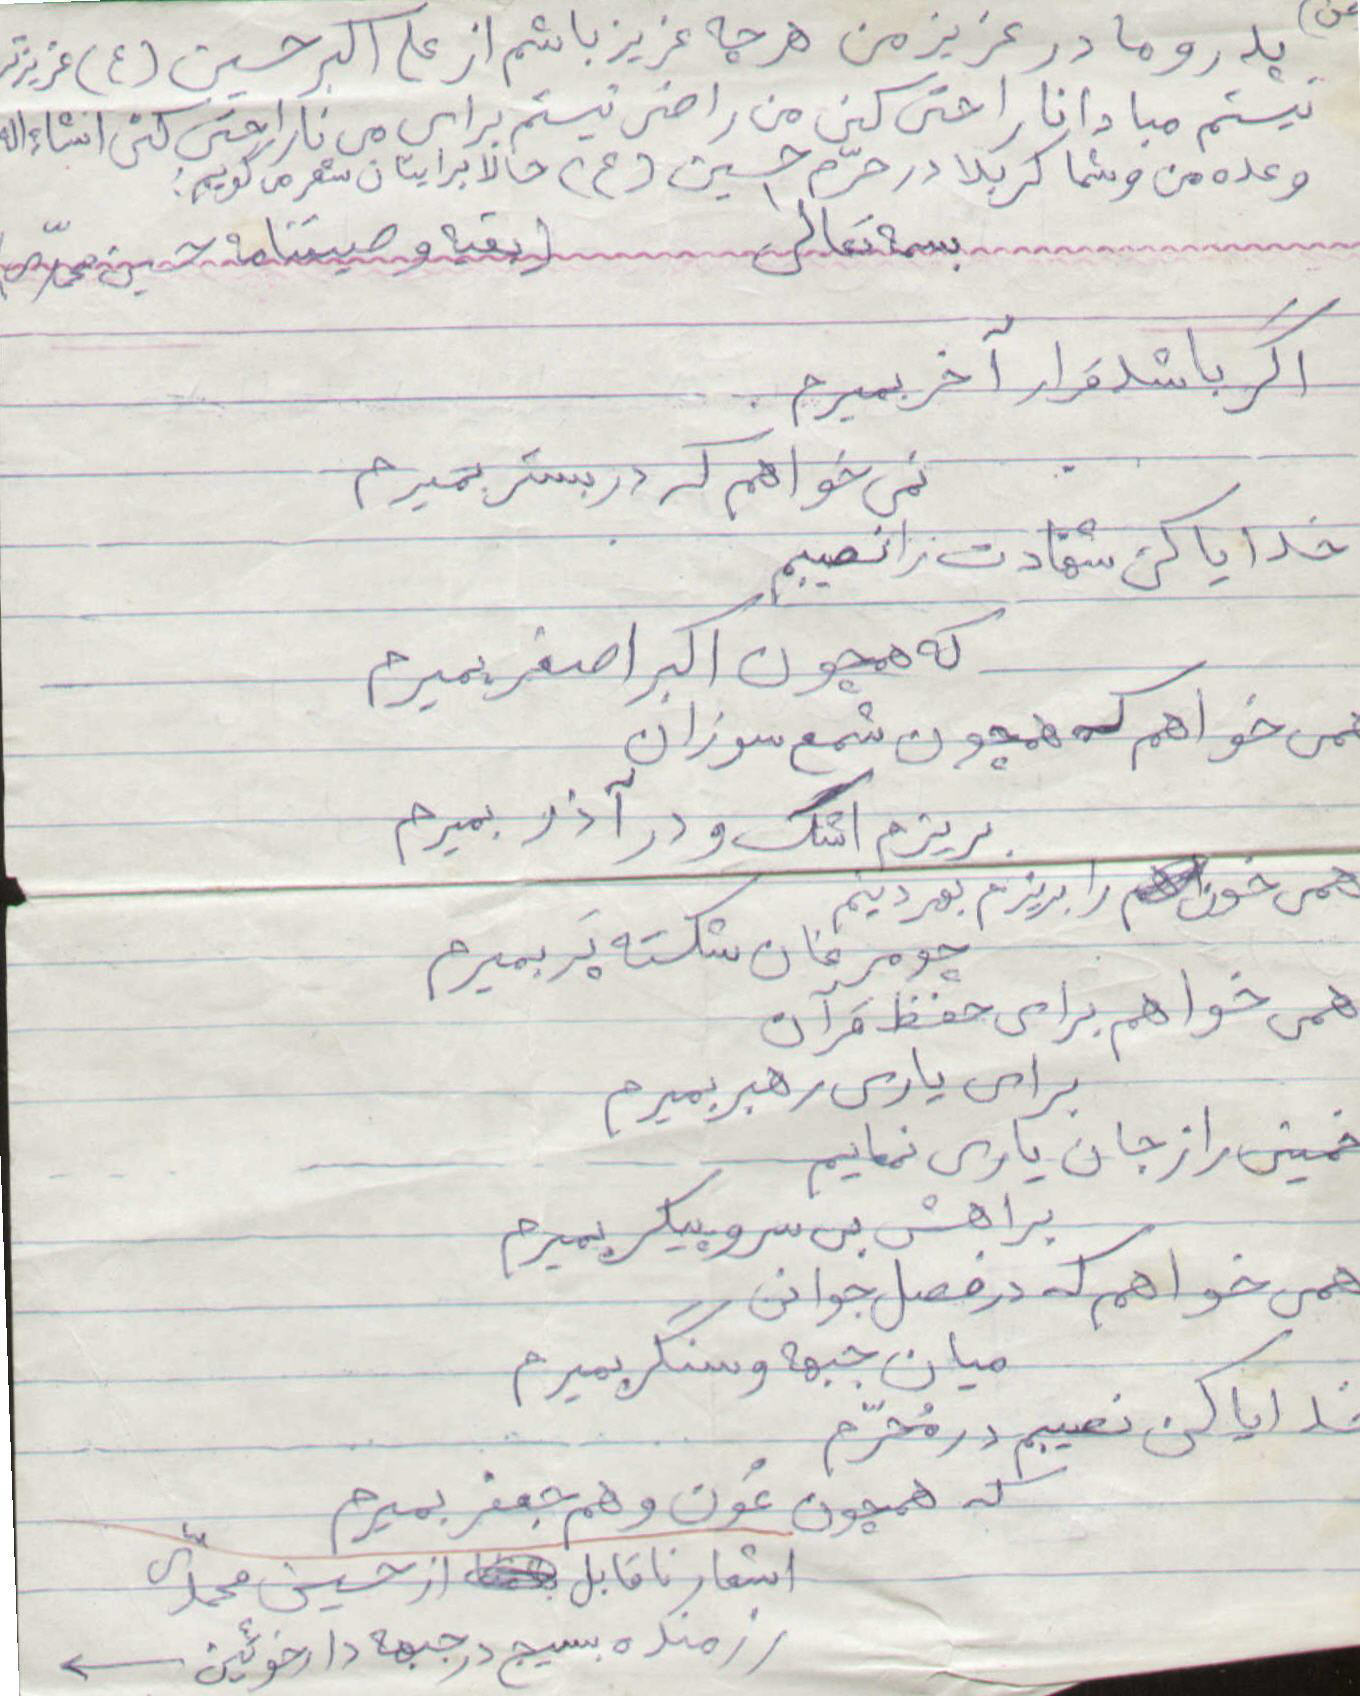 پدر و مادر عزیز من هر چه عزیز باشم از علی اکبر حسین (ع) عزیزتر
نیستم مبادا ناراحتی کنی من راضی نیستم برای من ناراحتی کنی انشاءاله
وعده من و شما کربلا در حرّم حسین (ع) حالا برایتان شعر می گویم:
بسمه تعالی (بقیه وصیتنامه حسین محمّدی)
اگر باشد قرار آخر بمیرم
نمی خواهم که در بستر بمیرم
خدایا کن شهادت را نصیبم
که همچون اکبر اصغر بمیرم
همی خواهم که همچون شمع سوزان
بریزم اشک و در آذر بمیرم
همی خون را بریزم بهر دینم
چو مرغان شکسته پَر بمیرم
همی خواهم برای حفظ قرآن
برای یاری رهبر بمیرم
خمینی را ز جان یاری نمایم
براهش بی سر و پیکر بمیرم
همی خواهم که در فصل جوانی
میان جبهه و سنگر بمیرم
خدایا کن نصیبم در مُحَرّم
که همچون عُون و هم جعفر بمیرم
اشعار ناقابل از حسین محمدّی
رزمنده بسیج در جبهه دارخوئین ←